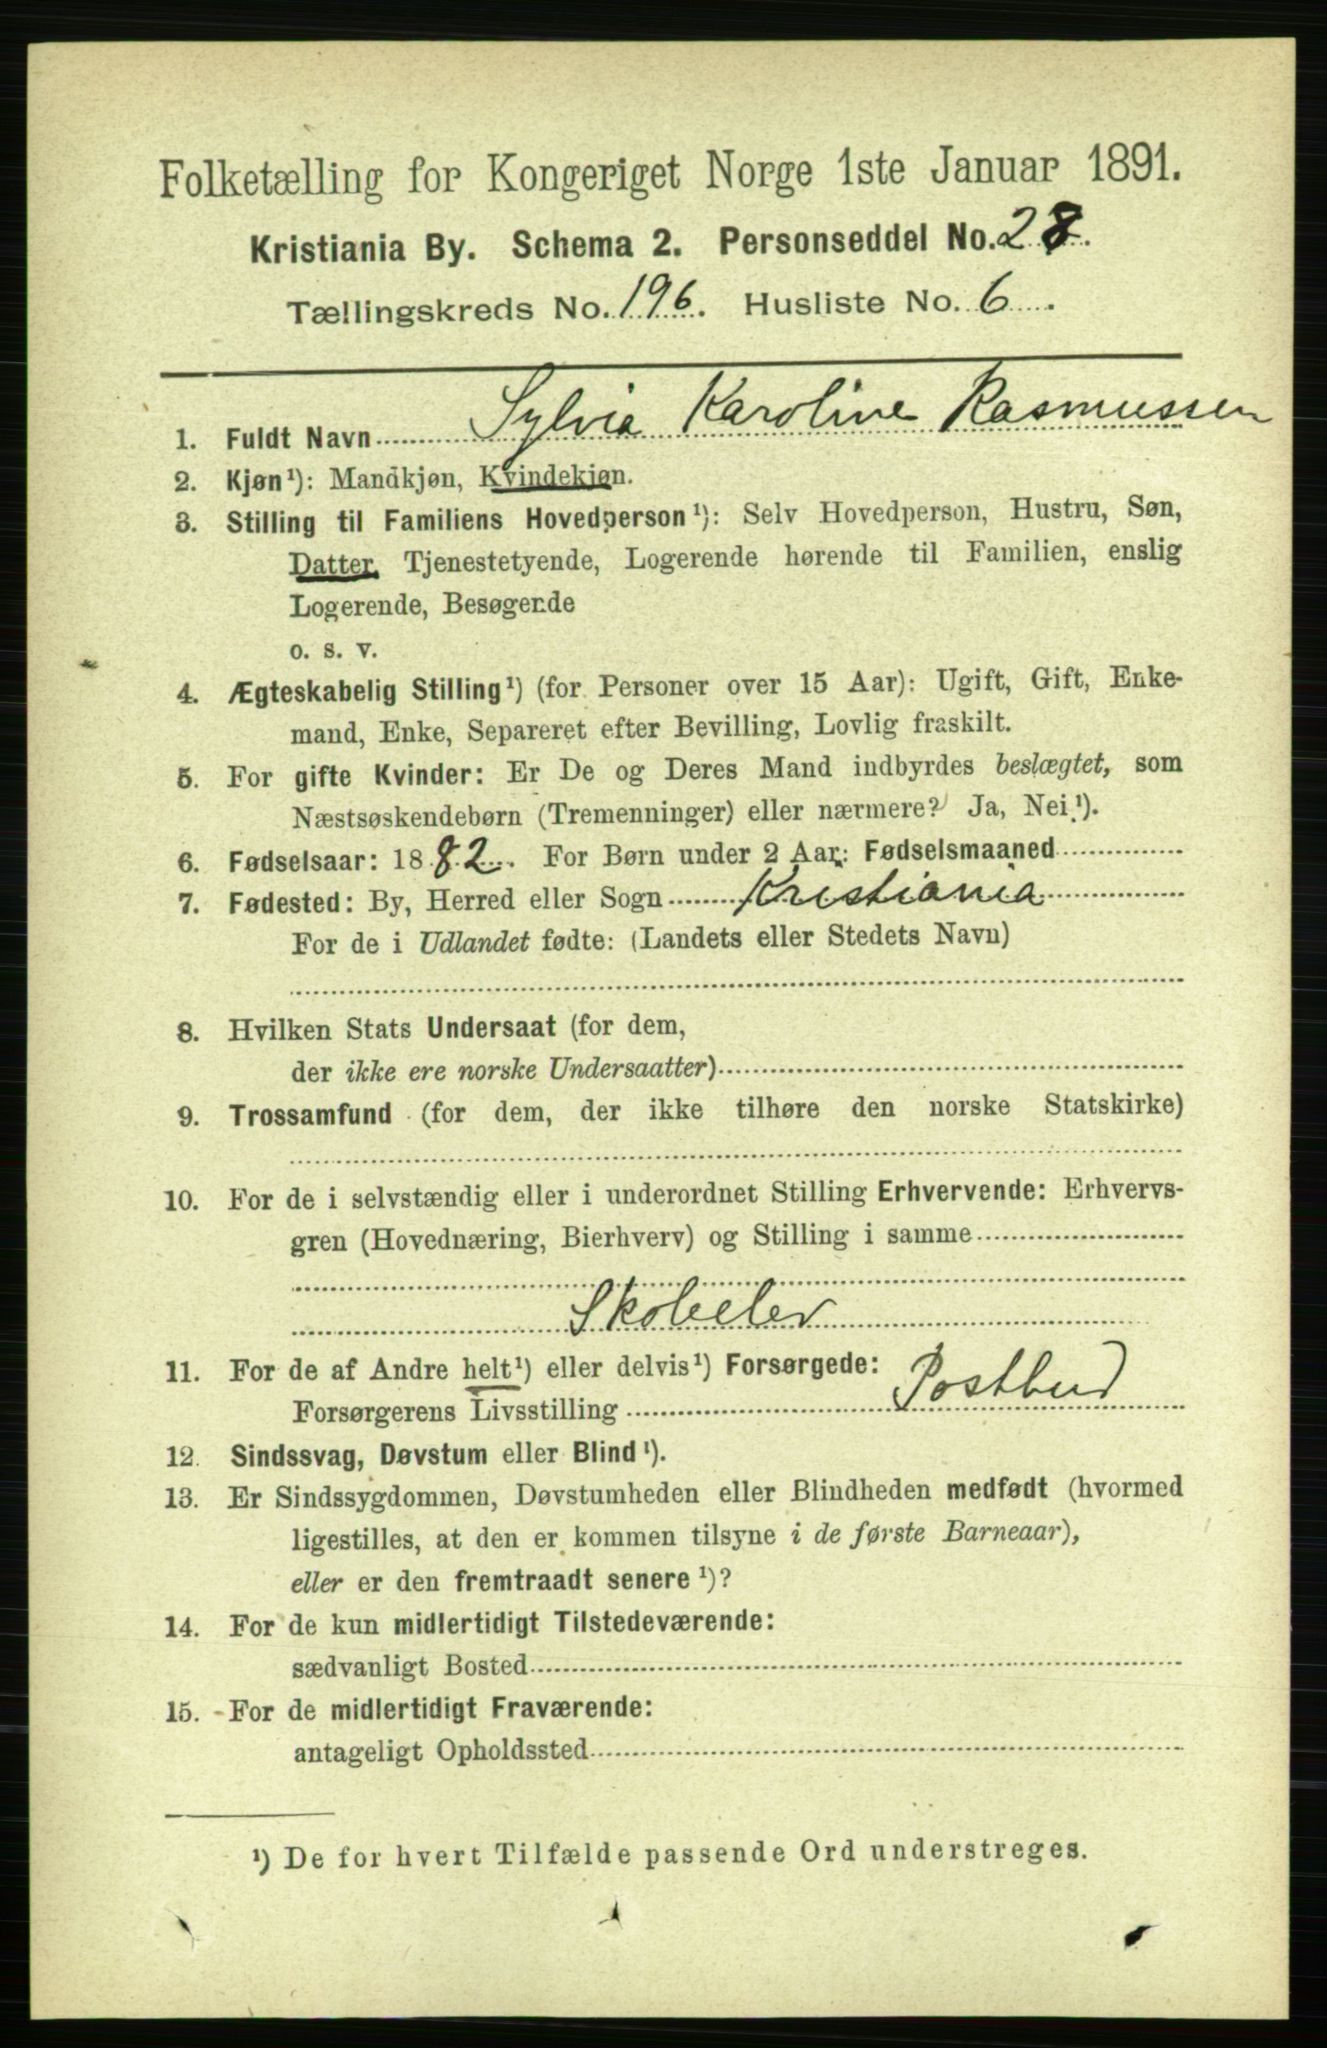 Folketælling for Kongeriget Norge 1ste Januar 1891.
Kristiania By. Schema 2. Personseddel No. 28.
Tællingskreds No. 196. Husliste No. 6.
1. Fuldt Navn Sylvia Karoline Rasmussen
2. Kjøn¹): Mandkjøn, Kvindekjøn.
3. Stilling til Familiens Hovedperson¹): Selv Hovedperson, Hustru, Søn,
Datter, Tjenestetyende, Logerende hørende til Familien, enslig
Logerende, Besøgende
o. s. v.
4. Ægteskabelig Stilling¹) (for Personer over 15 Aar): Ugift, Gift, Enke-
mand, Enke, Separeret efter Bevilling, Lovlig fraskilt.
5. For gifte Kvinder: Er De og Deres Mand indbyrdes beslægtet, som
Næstsøskendebørn (Tremenninger) eller nærmere? Ja, Nei¹).
6. Fødselsaar: 1882. For Børn under 2 Aar: Fødselsmaaned
7. Fødested: By, Herred eller Sogn Kristiania
For de i Udlandet fødte: (Landets eller Stedets Navn)
8. Hvilken Stats Undersaat (for dem,
der ikke ere norske Undersaatter)
9. Trossamfund (for dem, der ikke tilhøre den norske Statskirke)
10. For de i selvstændig eller i underordnet Stilling Erhvervende: Erhvervs-
gren (Hovednæring, Bierhverv) og Stilling i samme
Skoleelev
11. For de af Andre helt¹) eller delvis¹) Forsørgede:
Forsørgerens Livsstilling Postbud
12. Sindssvag, Døvstum eller Blind¹).
13. Er Sindssygdommen, Døvstumheden eller Blindheden medfødt (hvormed
ligestilles, at den er kommen tilsyne i de første Barneaar),
eller er den fremtraadt senere¹)?
14. For de kun midlertidigt Tilstedeværende:
sædvanligt Bosted
15. For de midlertidigt Fraværende:
antageligt Opholdssted
¹) De for hvert Tilfælde passende Ord understreges.